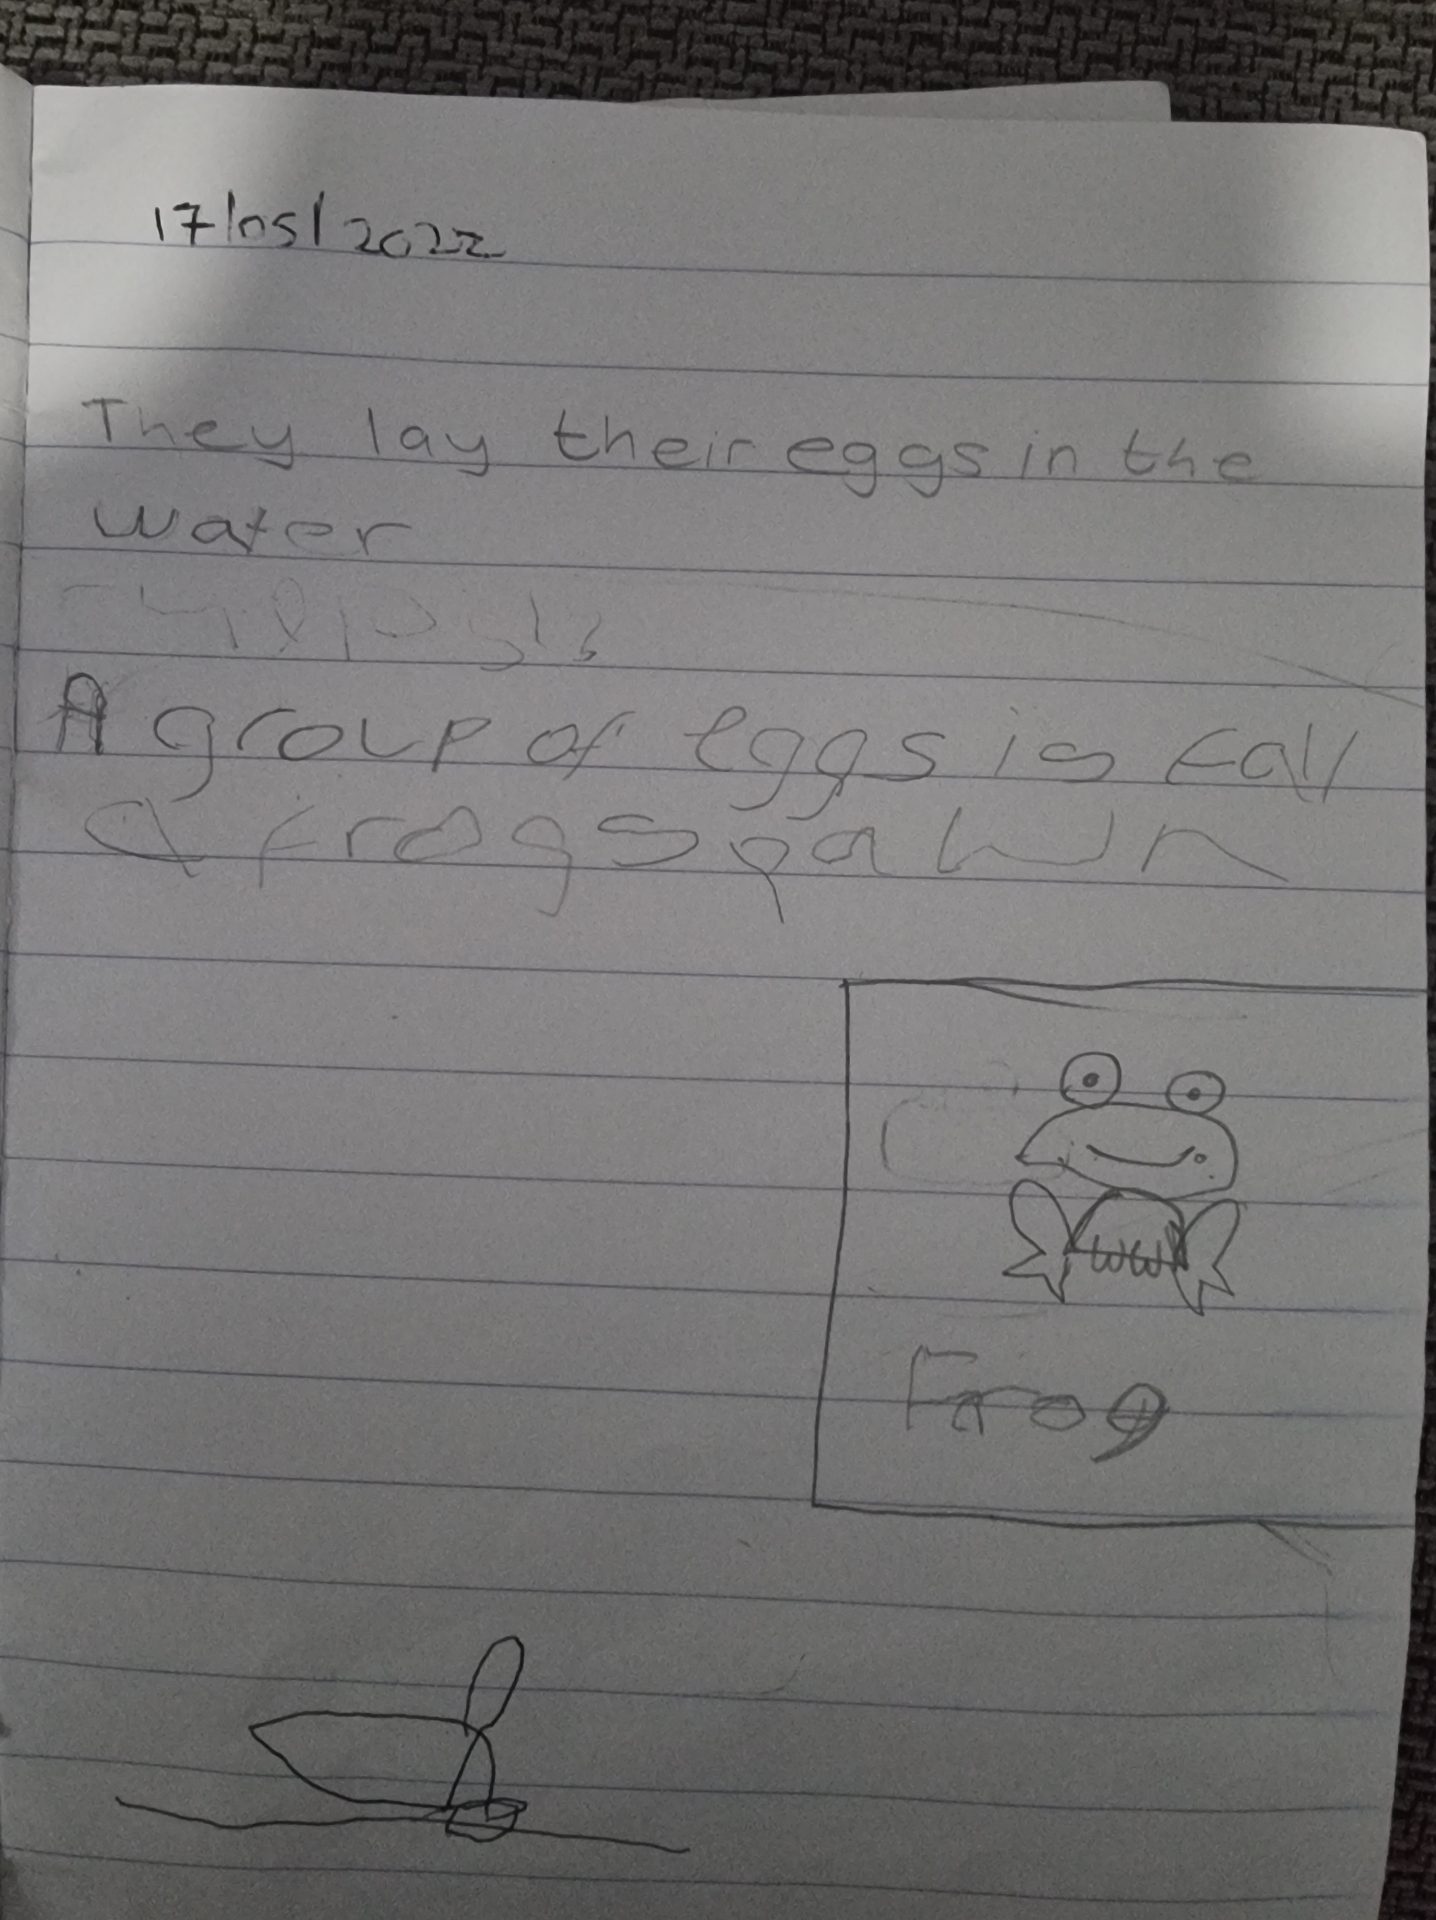 17/05/2022
They lay their eggs in the
water
A group of eggs is call
a frogspawn
Frog